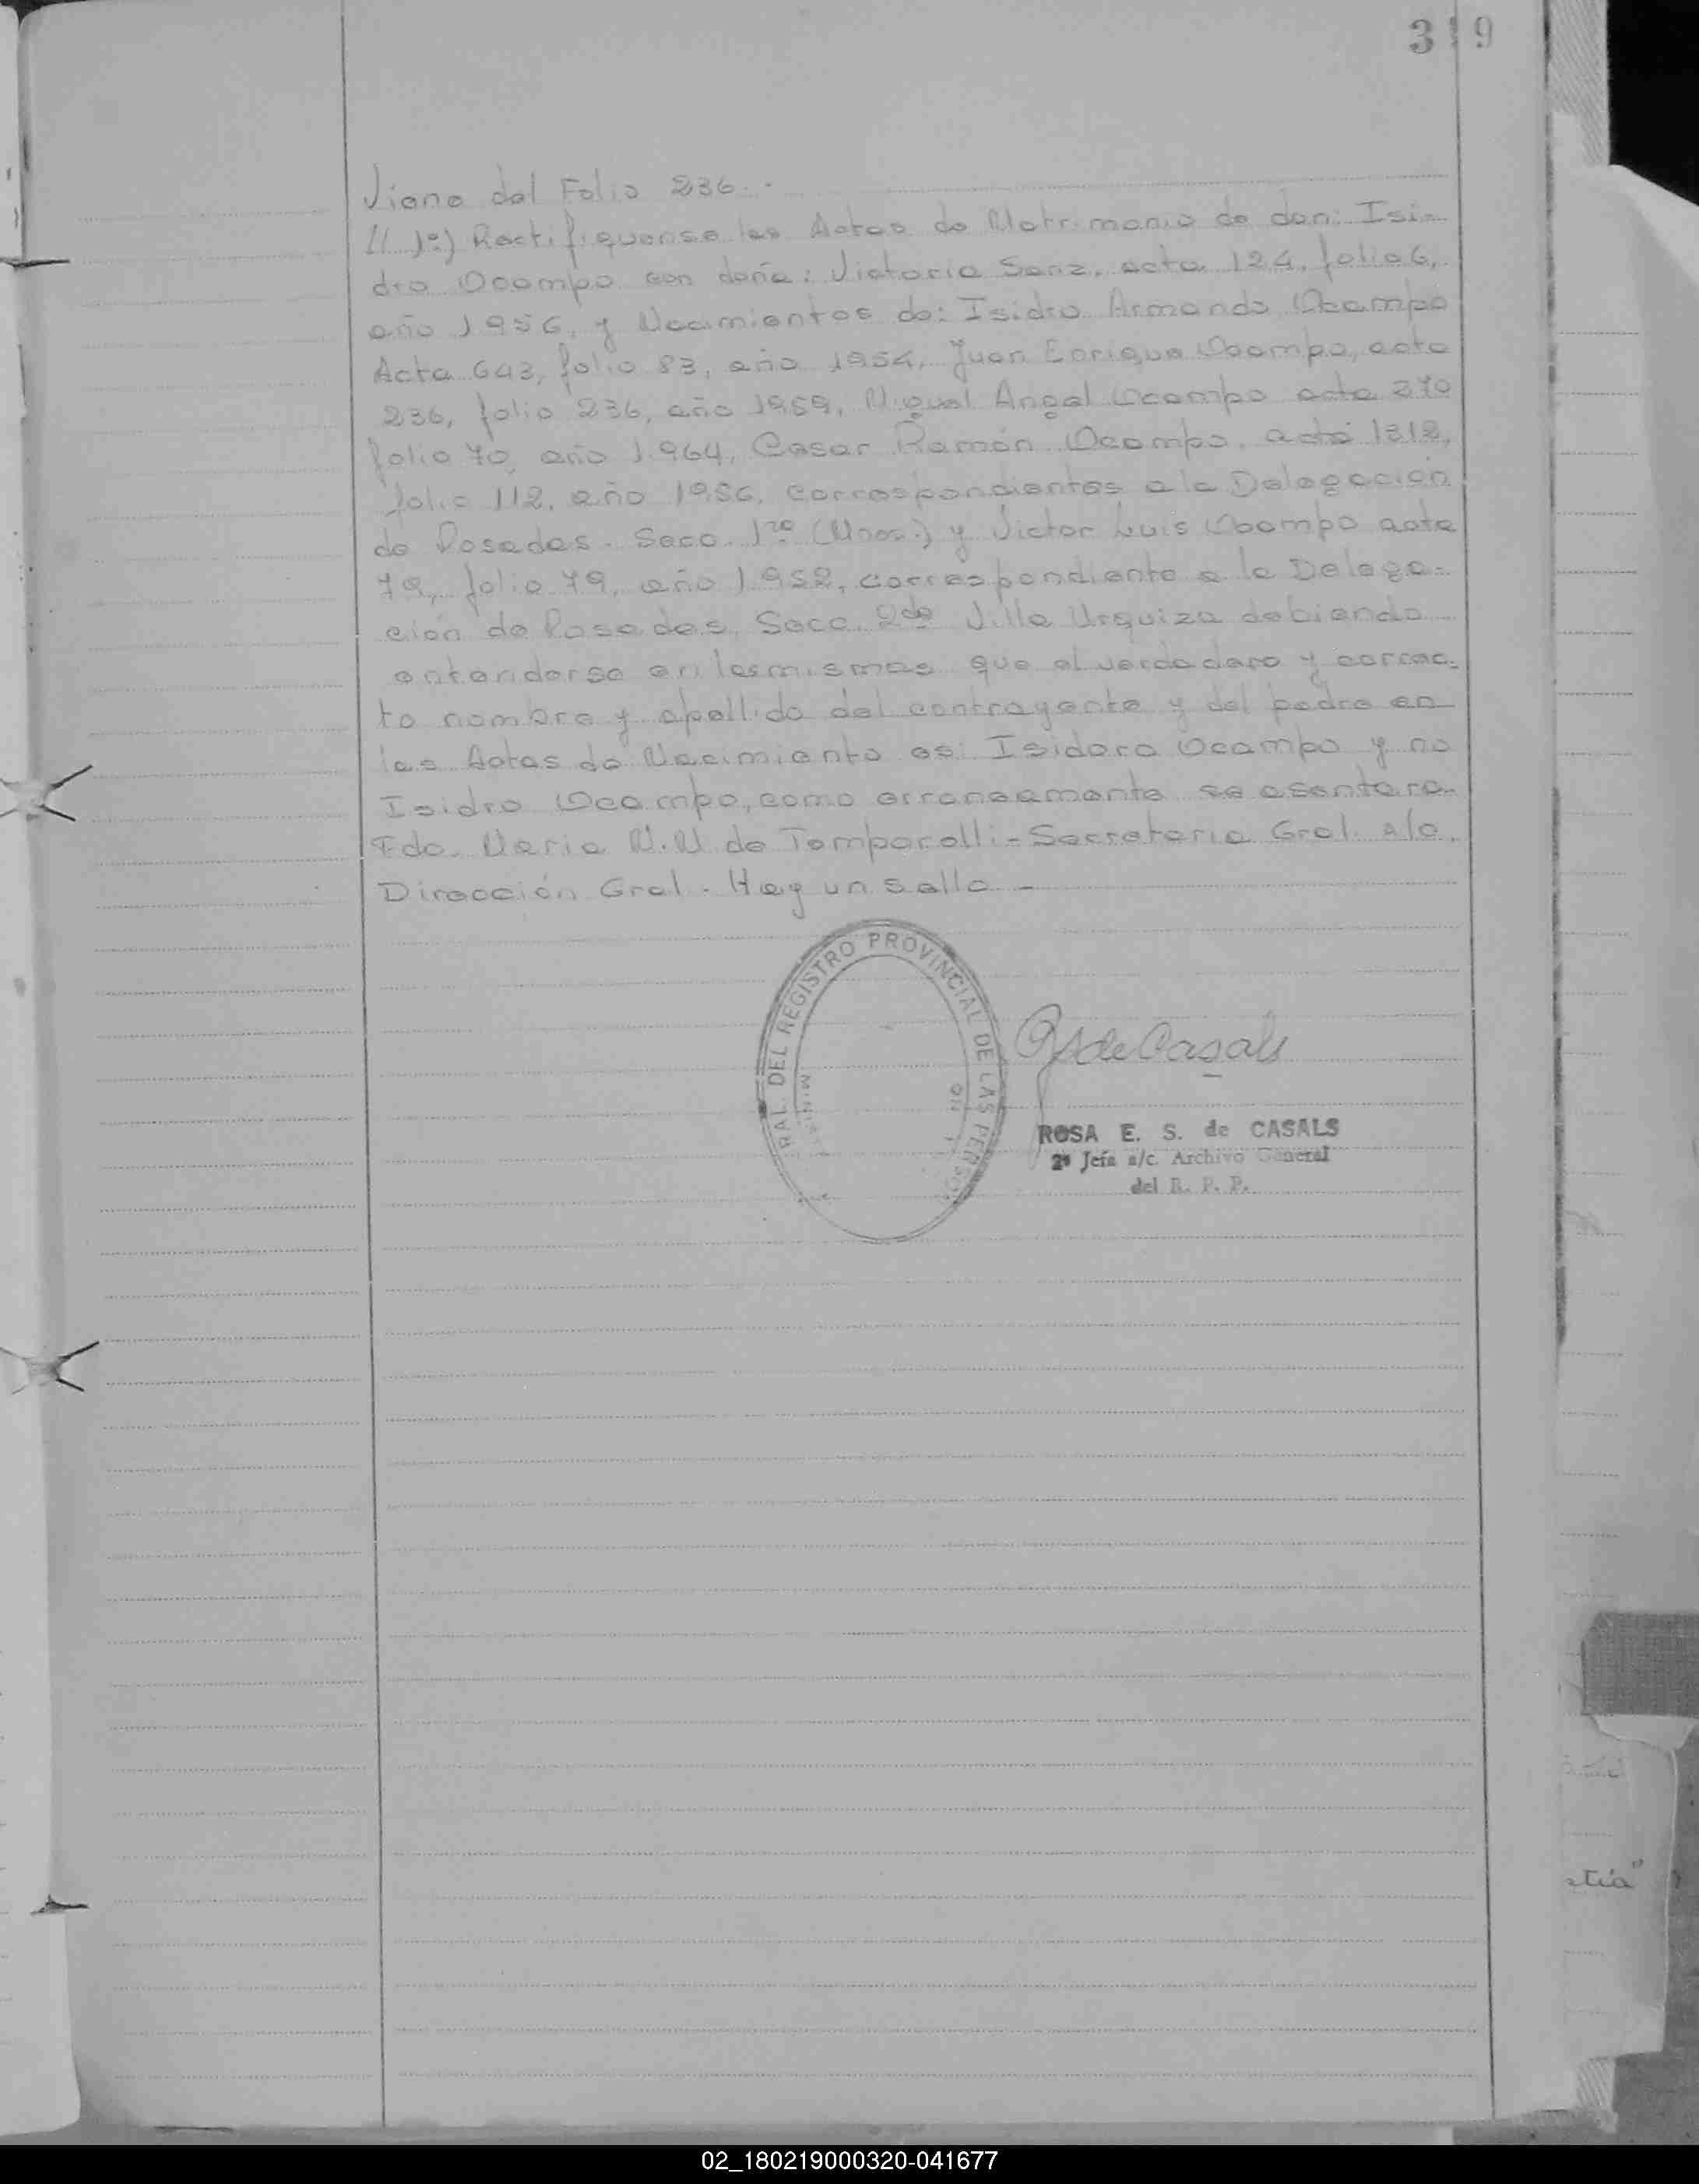 319
Viene del Folio 236.-
// 1º) Rectifiquense las Actas de Matrimonio de don: Isi-
dro Ocampo con doña: Victoria Sanz, acta 124, folio 6,
año 1956, y Nacimientos de: Isidro Armando Ocampo
Acta 643, folio 83, año 1954, Juan Enrique Ocampo, acta
236, folio 236, año 1959, Miguel Angel Ocampo acta 370
folio 70, año 1.964, Cesar Ramón Ocampo, acta 1312,
folio 112, año 1956, correspondientes a la Delegación
de Posadas. Secc. 1ra (Mnes.) y Victor Luis Ocampo acta
79, folio 79, año 1.952, correspondiente a la Delega-
ción de Posadas, Secc. 2da Villa Urquiza debiendo
entenderse en las mismas que el verdadero y correc-
to nombre y apellido del contrayente y del padre en
las Actas de Nacimiento es: Isidoro Ocampo y no
Isidro Ocampo, como erroneamente se asentara.
Fdo. Maria N. N. de Temporelli - Secretaria Gral. a/c.
Dirección Gral. Hay un sello -
RAL. DEL REGISTRO PROVINCIAL DE LAS PERSON
MINIS
de Casals
ROSA E. S. de CASALS
2ª Jefa a/c. Archivo General
del R. P. P.
02_180219000320-041677